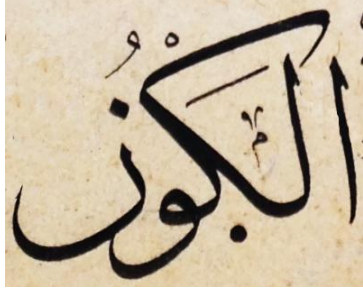 الكَوْزُ